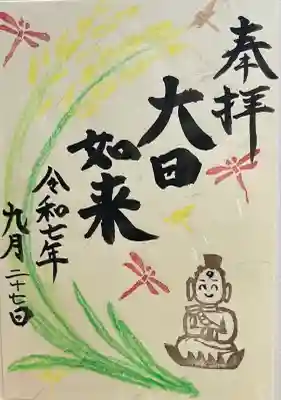 奉拝
大日
如来
令和七年
九月二十七日